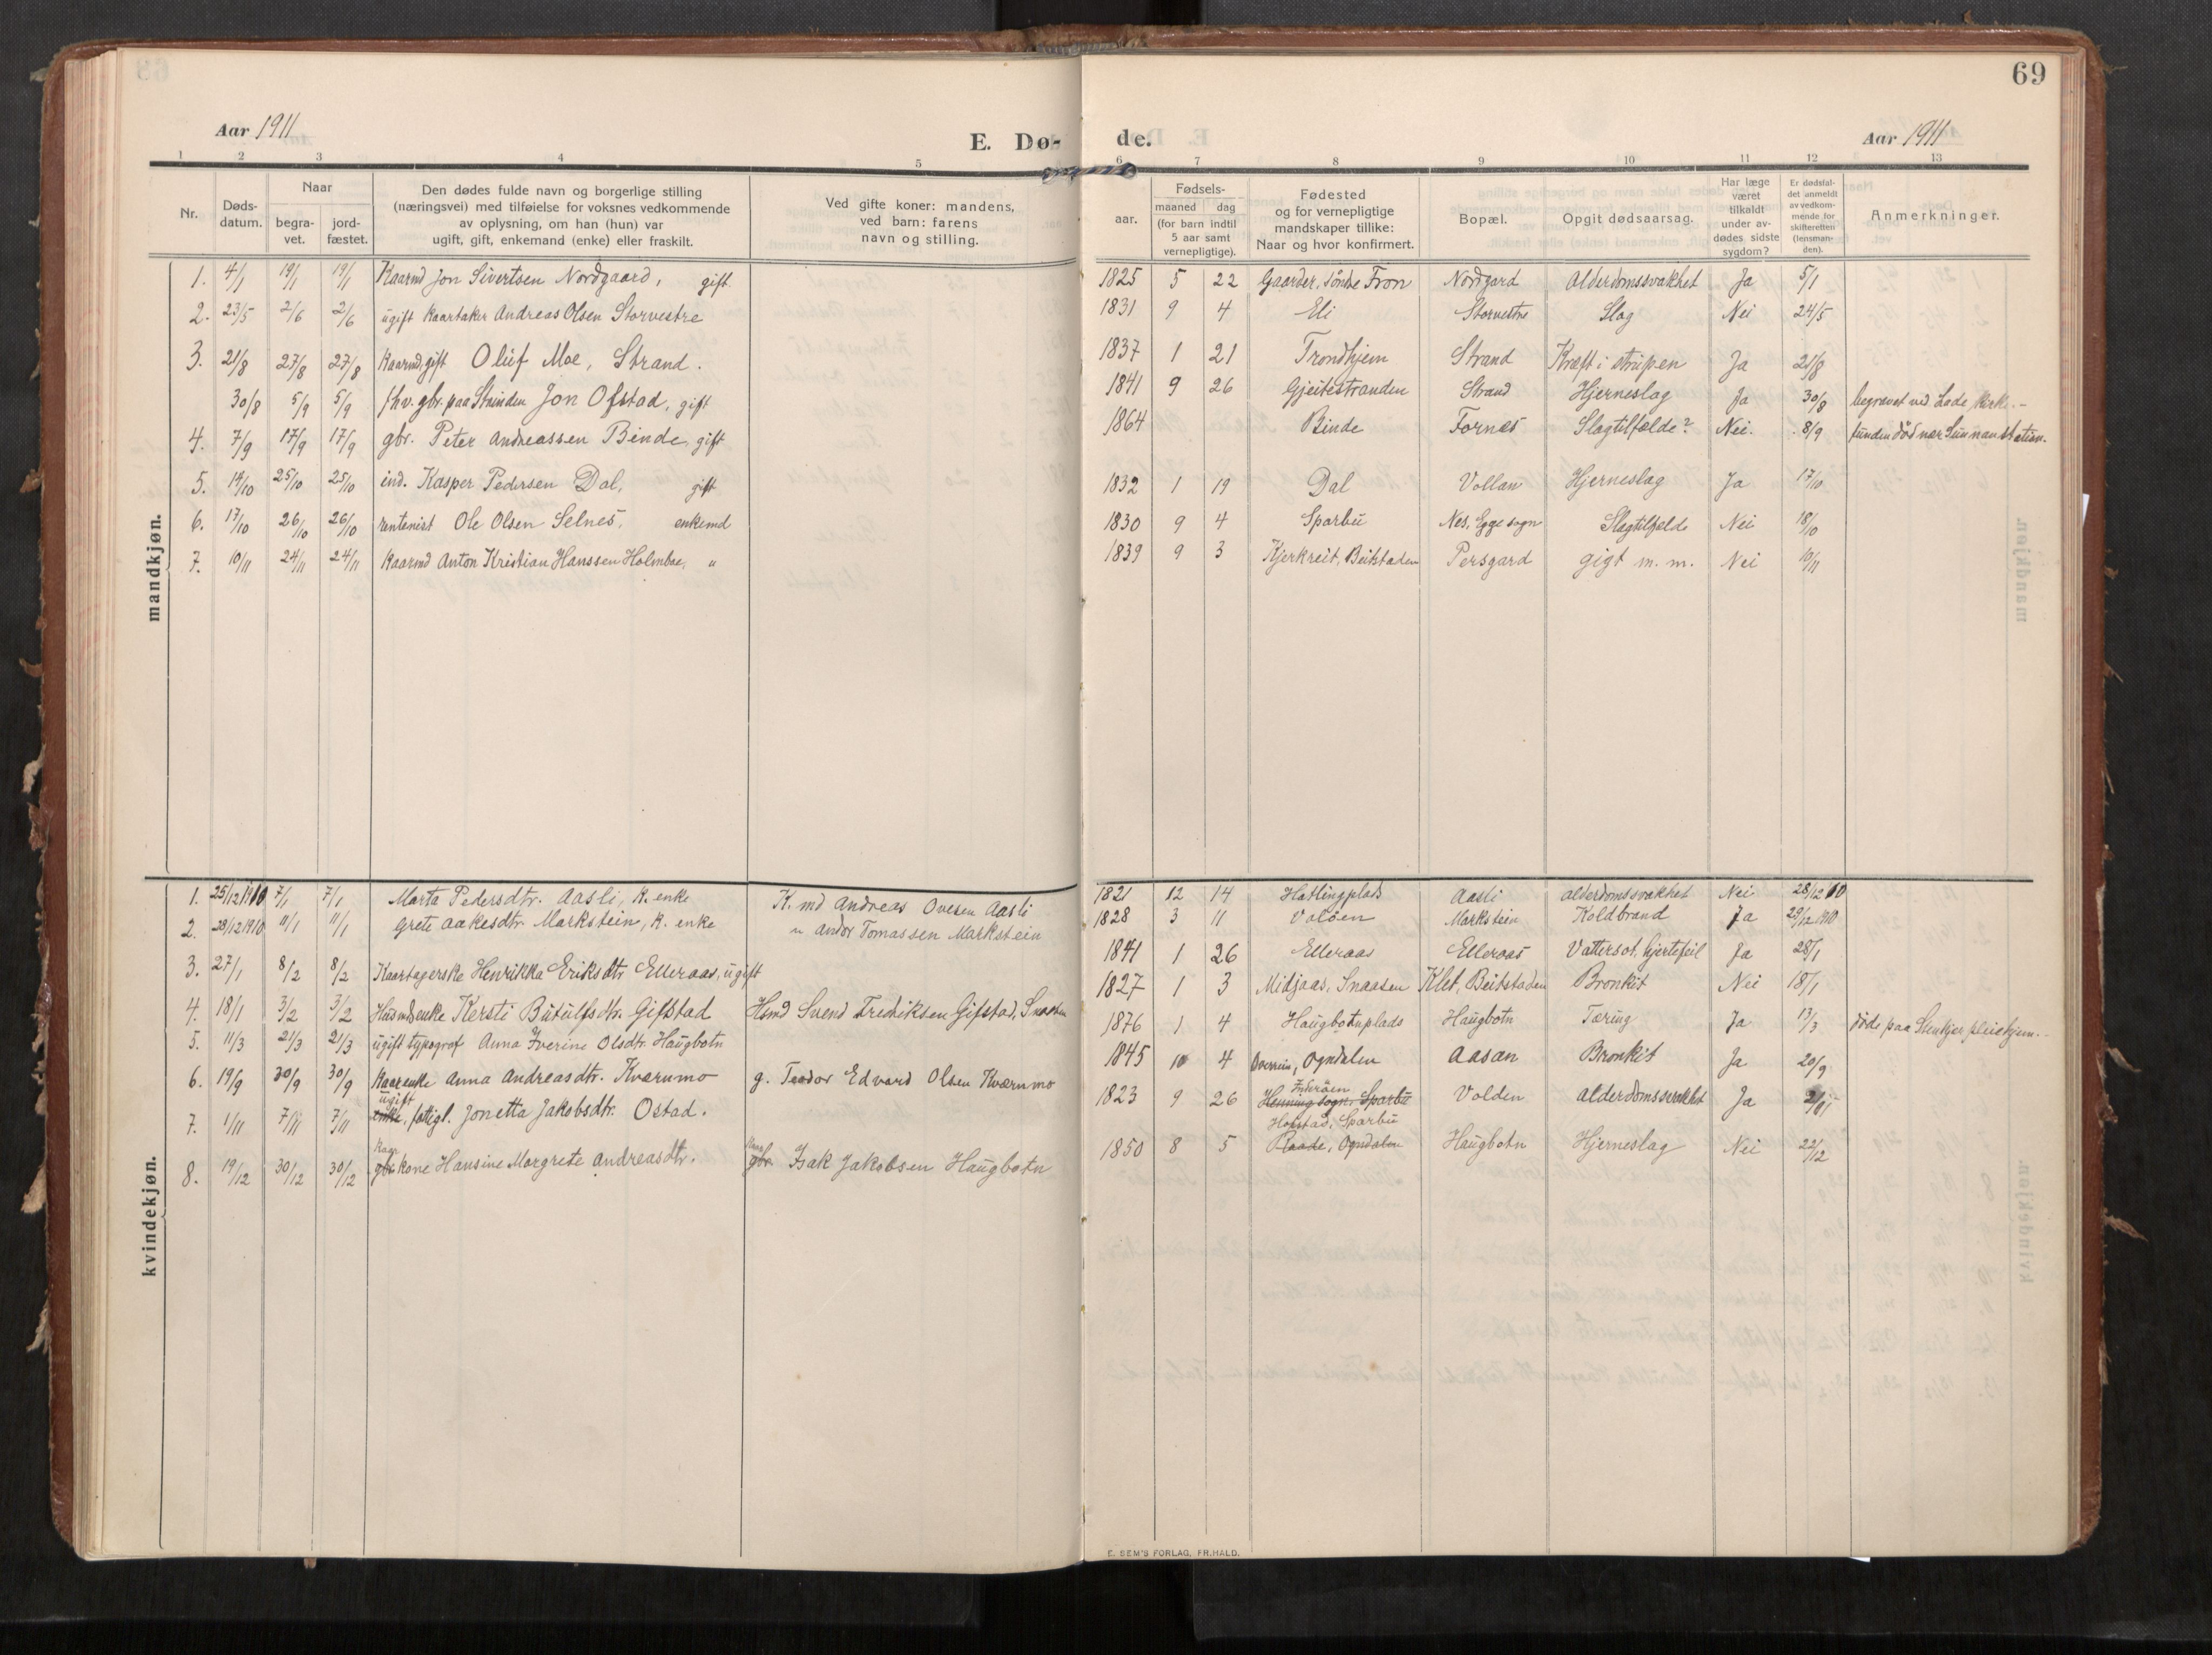 69
Aar 1911
E. Dø-
de.
Aar 1911
1 2 3 4 5 6 7 8 9 10 11 12 13
Nr.
Døds-
datum.
Naar
begra-
vet.
jord-
fæstet.
Den dødes fulde navn og borgerlige stilling
(næringsvei) med tilføielse for voksnes vedkommende
av oplysning, om han (hun) var
ugift, gift, enkemand (enke) eller fraskilt.
Ved gifte koner: mandens,
ved barn: farens
navn og stilling.
Fødsels-
aar.
maaned dag
(for barn indtil
5 aar samt
vernepligtige).
Fødested
og for vernepligtige
mandskaper tillike:
Naar og hvor konfirmert.
Bopæl.
Opgit dødsaarsag.
Har læge
været
tilkaldt
under av-
dødes sidste
sygdom?
Er dødsfal-
det anmeldt
av vedkom-
mende for
skifteretten
(lensman-
den).
Anmerkninger.
mandkjøn.
1. 4/1 19/1 19/1 Kaarmd Jon Sivertsen Nordgaard, gift 1825 5 22 Gaarder, Søndre Fron Nordgard Alderdomssvakhet Ja 5/1
2. 23/5 2/6 2/6 ugift kaartaker Andreas Olsen Storvestre 1831 9 4 Eli Storvestre Slag Nei 24/5
3. 21/8 27/8 27/8 Kaarmd, gift Oluf Moe, Strand. 1837 1 21 Trondhjem Strand Kræft i strupen Ja 21/8
30/8 5/9 5/9 fhv. gbr. paa Strinden Jon Ofstad, gift 1841 9 26 Gjeitestranden Strand Hjerneslag Ja 30/8 begravet ved Lade kirke.-
4. 7/9 17/9 17/9 gbr. Peter Andreassen Binde, gift 1864 Binde Fornes Slagtilfælde? Nei. 8/9 funden død nær Sunnan station.
5. 14/10 25/10 25/10 ind. Kasper Pedersen Dal, gift 1832 1 19 Dal Vollan Hjerneslag Ja 17/10
6. 17/10 26/10 26/10 rentenist Ole Olsen Selnes, enkemd 1830 9 4 Sparbu Nes, Egge sogn Slagtilfælde Nei 18/10
7. 10/11 24/11 24/11 Kaarmd Anton Kristian Hanssen Holmboe, " 1839 9 3 Kjerkreit, Beitstaden Persgard gigt m. m. Nei 10/11
kvindekjøn.
1. 25/12 1910 7/1 7/1 Marta Pedersdtr. Aasli, K. enke K. md Andreas Ovesen Aasli 1821 12 14 Hatlingplads Aasli alderdomssvakhet Nei 28/12 10
2. 28/12 1910 11/1 11/1 Grete Aakesdtr. Markstein, K. enke " Andor Tomassen Markstein 1828 3 11 Valøen Markstein Koldbrand Ja 29/12 1910
3. 27/1 8/2 8/2 Kaartagerske Henrikka Eriksdtr. Elleraas, ugift 1841 1 26 Elleraas Elleraas Vattersot, hjertefeil Ja 28/1
4. 18/1 3/2 3/2 Husmdsenke Kersti Butulfsdtr. Gifstad Hsmd Svend Frediksen Gifstad, Snaasen 1827 1 3 Midjaas, Snaasen Klet, Beitstaden Bronkit Nei 18/1
5. 11/3 21/3 21/3 ugift typograf Anna Iverine Olsdtr. Haugbotn 1876 1 4 Haugbotnplads Haugbotn Tæring Ja 13/3 døde paa Stenkjer pleiehjem.-
6. 19/9 30/9 30/9 Kaarenke Anna Andreasdtr. Kværnmo g. Teodor Edvard Olsen Kværnmo 1845 10 4 Ogndalen Aasan Bronkit Ja 20/9
7. 1/11 7/11 7/11 enke ugift, fattigl. Jonetta Jakobsdtr. Ostad. 1823 9 26 Henning sogn. Sparbu Inderøen Volden alderdomssvakhet Ja
8. 19/12 30/12 30/12 gbr Kaarkone Hansine Margrete Andreasdtr. gbr. Kaar Isak Jakobsen Haugbotn 1850 8 5 Raade, Ogndalen Hofstad, Sparbu Haugbotn Hjerneslag Nei 22/12
E. SEM'S FORLAG, FR.HALD.